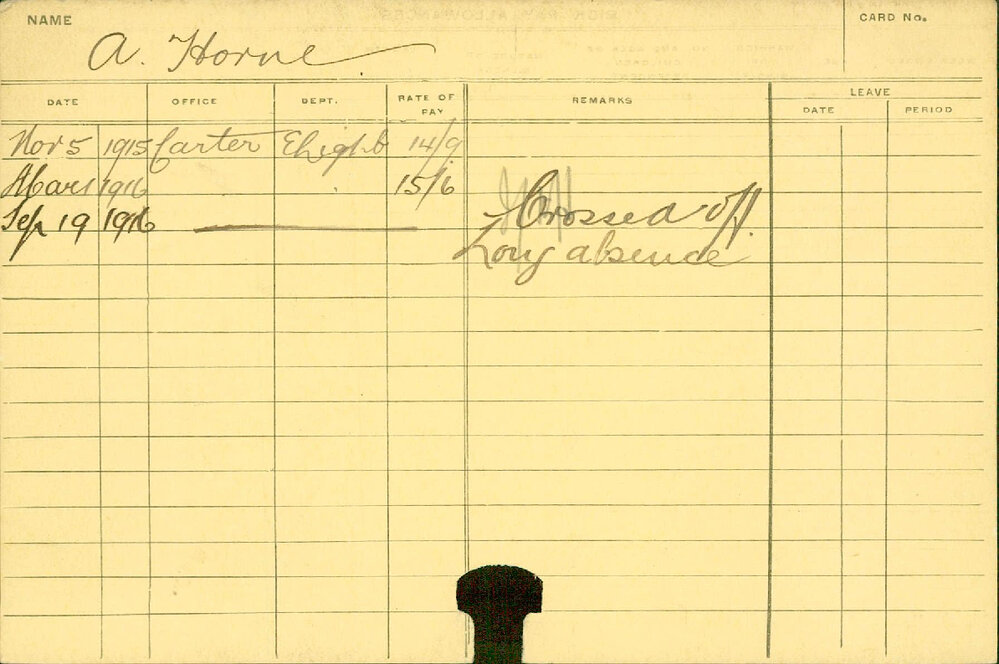 NAME
CARD No.
A. Horne
DATE OFFICE DEPT. RATE OF PAY REMARKS LEAVE
DATE PERIOD
Nov 5 1915 Carter 14/9
Mar 1 1916 15/6
Sep 19 1916 Crossed off
Long absence